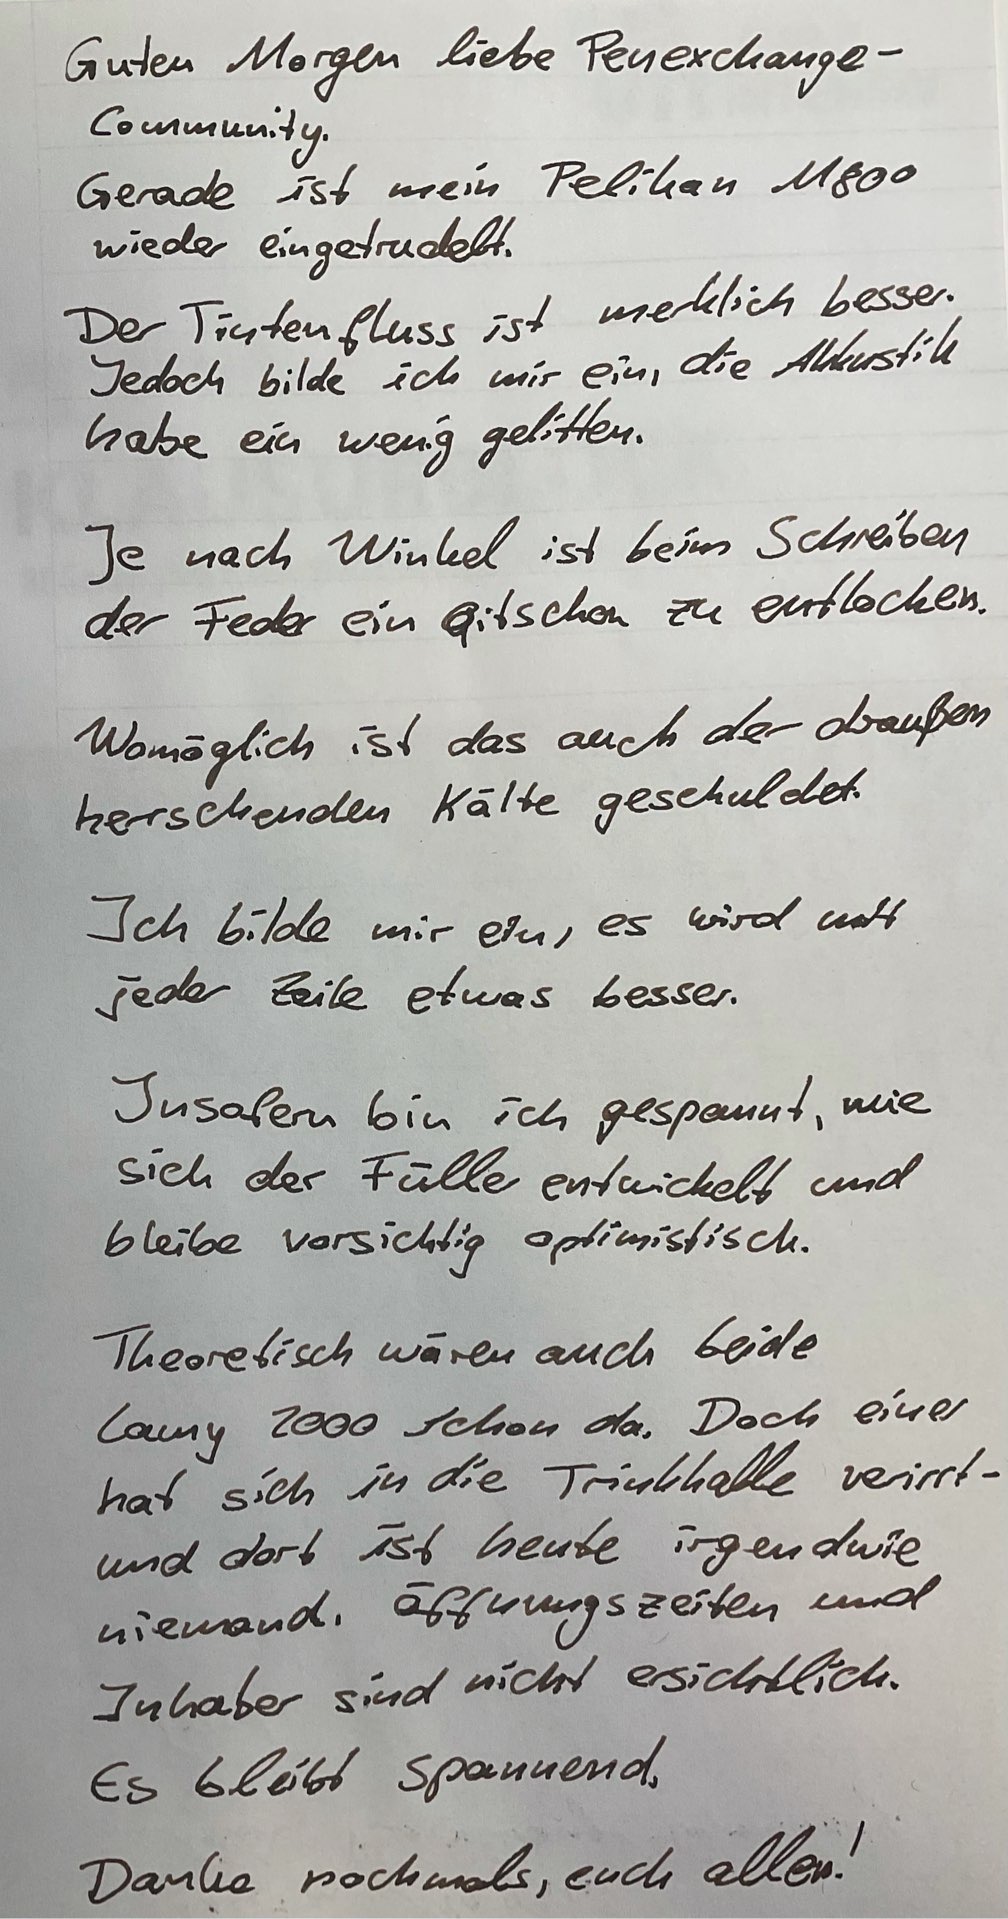 Guten Morgen liebe Penexchange-
Community.
Gerade ist mein Pelikan M800
wieder eingetrudelt.
Der Tintenfluss ist merklich besser.
Jedoch bilde ich mir ein, die Akkustik
habe ein wenig gelitten.
Je nach Winkel ist beim Schreiben
der Feder ein Qitschen zu entlocken.
Womöglich ist das auch der draußen
herrschenden Kälte geschuldet.
Ich bilde mir ein, es wird mit
jeder Zeile etwas besser.
Insofern bin ich gespannt, wie
sich der Füller entwickelt und
bleibe vorsichtig optimistisch.
Theoretisch wären auch beide
Lamy 2000 schon da. Doch einer
hat sich in die Trinkhalle verirrt-
und dort ist heute irgendwie
niemand. Öffnungszeiten und
Inhaber sind nicht ersichtlich.
Es bleibt spannend.
Danke nochmals, euch allen!